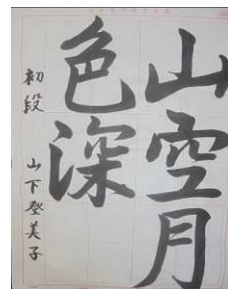 山空月
色深
初段 山下登美子